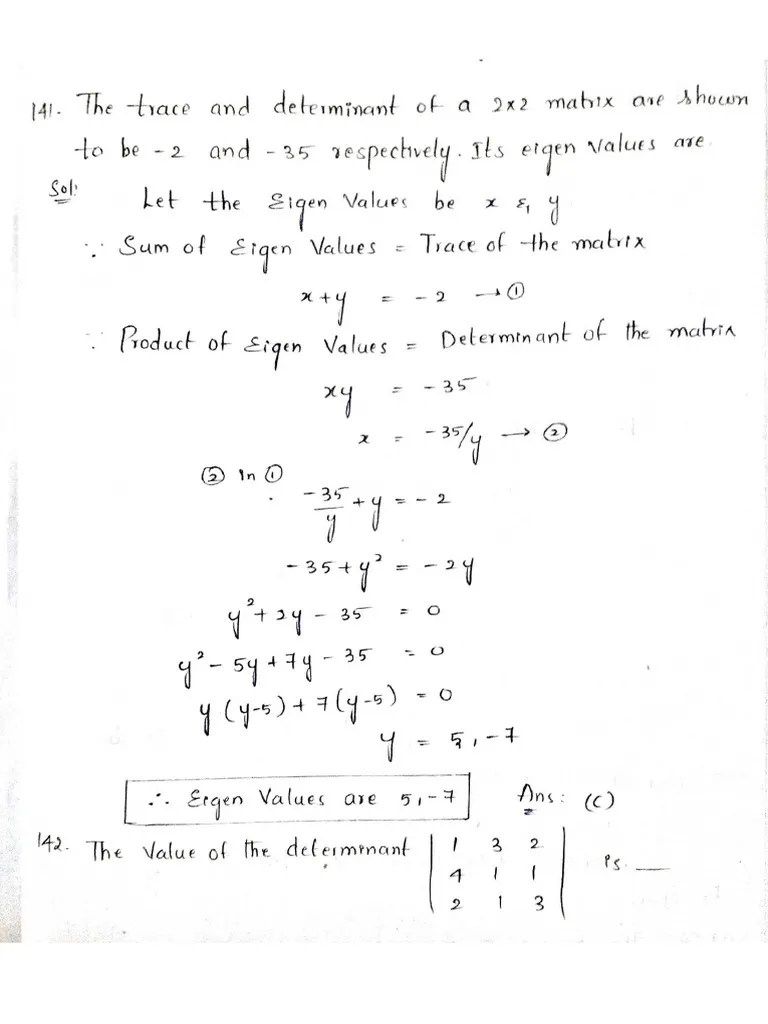 141. The trace and determinant of a 2x2 matrix are shown
to be -2 and -35 respectively. Its eigen values are
Sol: Let the Eigen Values be x & y
∵ Sum of Eigen Values = Trace of the matrix
x+y = -2 → ①
∵ Product of Eigen Values = Determinant of the matrix
xy = -35
x = -35/y → ②
② in ①
-35/y + y = -2
-35+y² = -2y
y²+2y-35 = 0
y²-5y+7y-35 = 0
y(y-5)+7(y-5) = 0
y = 5,-7
∴ Eigen Values are 5,-7 Ans: (C)
142. The Value of the determinant | 1 3 2 | is __
| 4 1 1 |
| 2 1 3 |